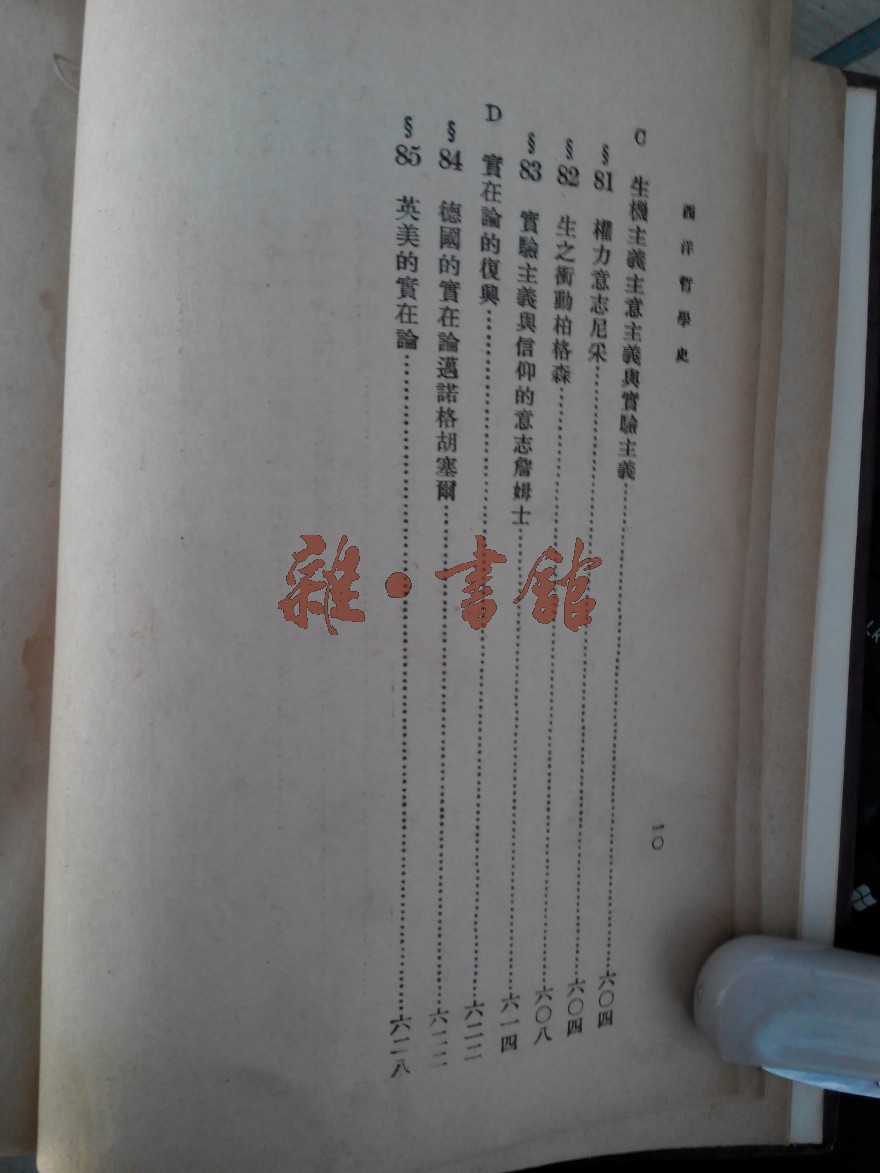 西洋哲學史
一〇
C 生機主義主意主義與實驗主義……六〇四
§81 權力意志尼采……六〇四
§82 生之衝動柏格森……六〇八
§83 實驗主義與信仰的意志詹姆士……六一四
D 實在論的復興……六二二
§84 德國的實在論邁諾格胡塞爾……六二二
§85 英美的實在論……六二八
雜·書館